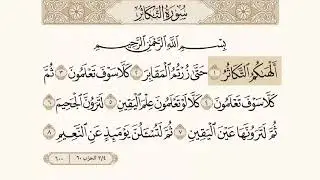 سُورَةُ التَّكَاثُرِ
بِسْمِ اللَّهِ الرَّحْمَٰنِ الرَّحِيمِ
أَلْهَىٰكُمُ التَّكَاثُرُ ١ حَتَّىٰ زُرْتُمُ الْمَقَابِرَ ٢ كَلَّا سَوْفَ تَعْلَمُونَ ٣ ثُمَّ
كَلَّا سَوْفَ تَعْلَمُونَ ٤ كَلَّا لَوْ تَعْلَمُونَ عِلْمَ الْيَقِينِ ٥ لَتَرَوُنَّ الْجَحِيمَ ٦
ثُمَّ لَتَرَوُنَّهَا عَيْنَ الْيَقِينِ ٧ ثُمَّ لَتُسْـَٔلُنَّ يَوْمَئِذٍ عَنِ النَّعِيمِ ٨
٦٠٠ ٢/٤ الحزب ٦٠